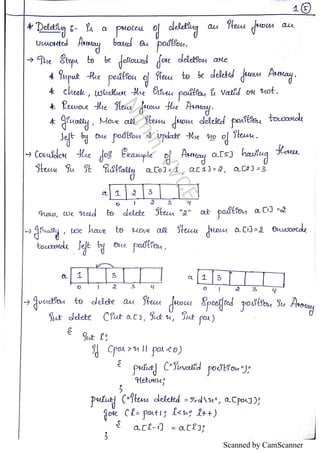 1 5
* Deleting :- Is a process of deleting an Item from an
unordered Array based on position.
→ The steps to be followed for deletion are
* Input the position of Item to be deleted from Array.
* check, whether the Given position is valid or not.
* Remove the Item from the Array.
* Finally, Move all Items from deleted position towards
left by one position & update the no of Item.
→ Consider the foll Example of Array a[5] having three
Item in it Initially a[0]=1, a[1]=2, a[2]=3
a 1 2 3
0 1 2 3 4
now, we need to delete Item "2" at position a[1]=2
→ Finally, we have to move all Item from a[1]=2 onwards
towards left by one position.
a 1 3 a 1 3
0 1 2 3 4 0 1 2 3 4
→ Function to delete an Item from Specified position in Array
int delete (int a[], int n, int pos)
{
int i;
if (pos>n || pos<0)
{ printf ("Invalid position");
return;
}
printf ("Item deleted = %d\n", a[pos]);
for (i=pos+1; i<n; i++)
{ a[i-1] = a[i];
}
Scanned by CamScanner